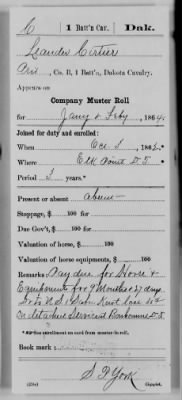 C | 1 Batt'n Cav. | Dak.
Leander Cirtier
Pri , Co. B, 1 Batt'n, Dakota Cavalry.
Appears on
Company Muster Roll
for Jany & Feby , 186 .
Joined for duty and enrolled:
When , 186 .
Where Elk Point D.T.
Period 3 years.*
Present or absent absent
Stoppage, $ 100 for
Due Gov't, $ 100 for
Valuation of horse, $ 100
Valuation of horse equipments, $ 100
Remarks: Pay due for Horse &
Equipments for 9 Months & 27 days
Due U.S. 1
On detached Service at D.T.
*See enrollment on card from muster-in roll.
Book mark:
S. T. York
(358) Copyist.